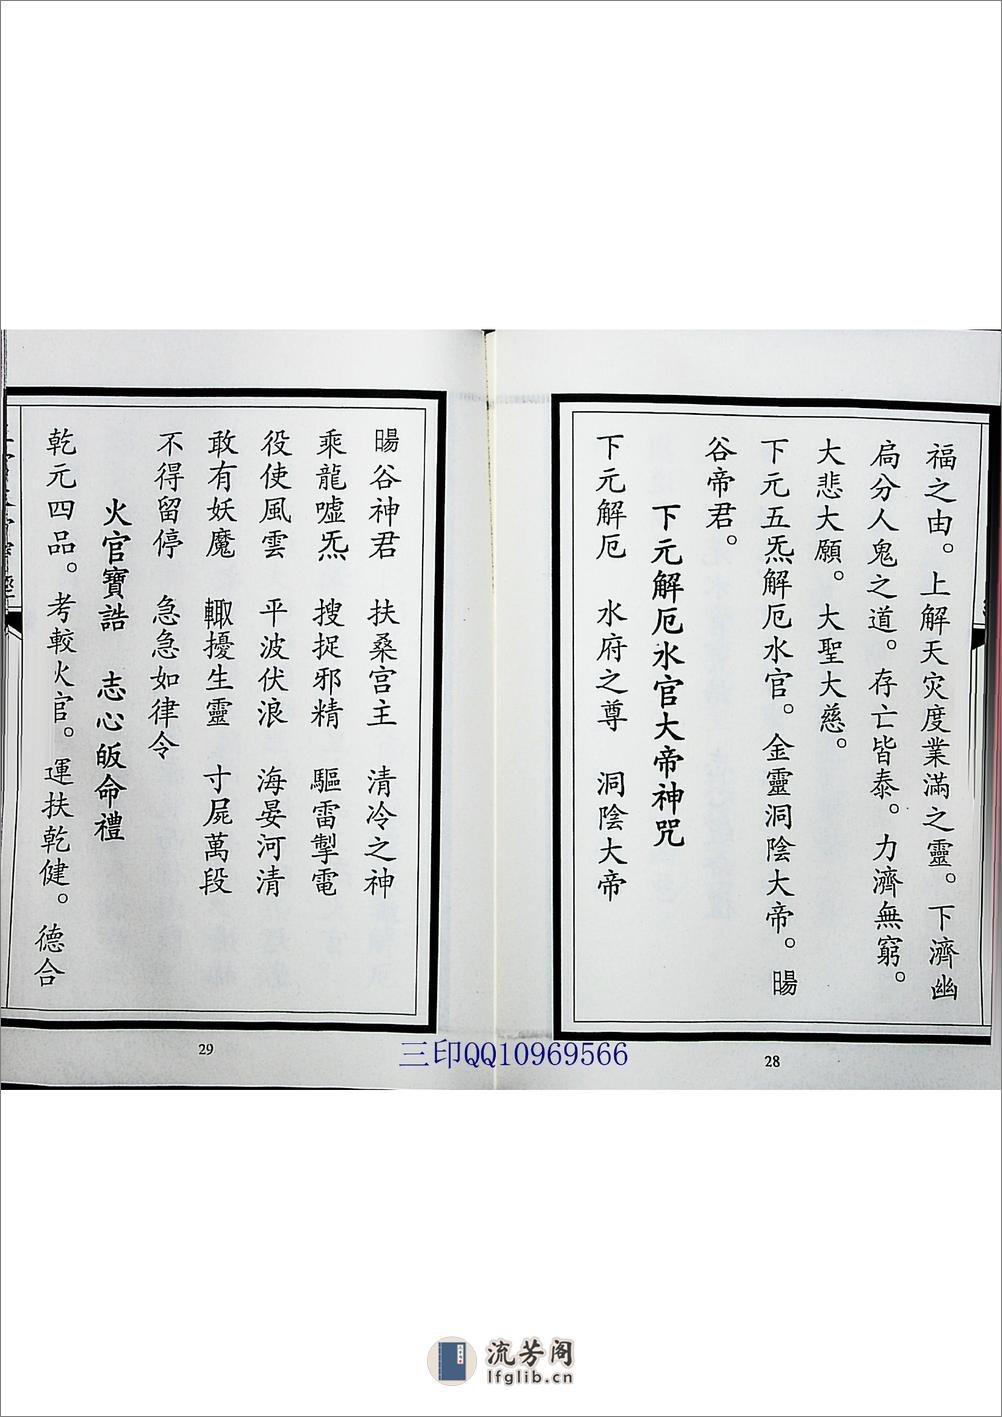 福之由。上解天灾度業滿之靈。下濟幽
扃分人鬼之道。存亡皆泰。力濟無窮。
大悲大願。大聖大慈。
下元五炁解厄水官。金靈洞陰大帝。暘
谷帝君。
下元解厄水官大帝神咒
下元解厄 水府之尊 洞陰大帝
28
暘谷神君 扶桑宫主 清冷之神
乘龍噓炁 搜捉邪精 驅雷掣電
役使風雲 平波伏浪 海晏河清
敢有妖魔 輙擾生靈 寸屍萬段
不得留停 急急如律令
火官寶誥 志心皈命禮
乾元四品。考較火官。運扶乾健。德合
29
三印QQ10969566
流芳阁
lfglib.cn